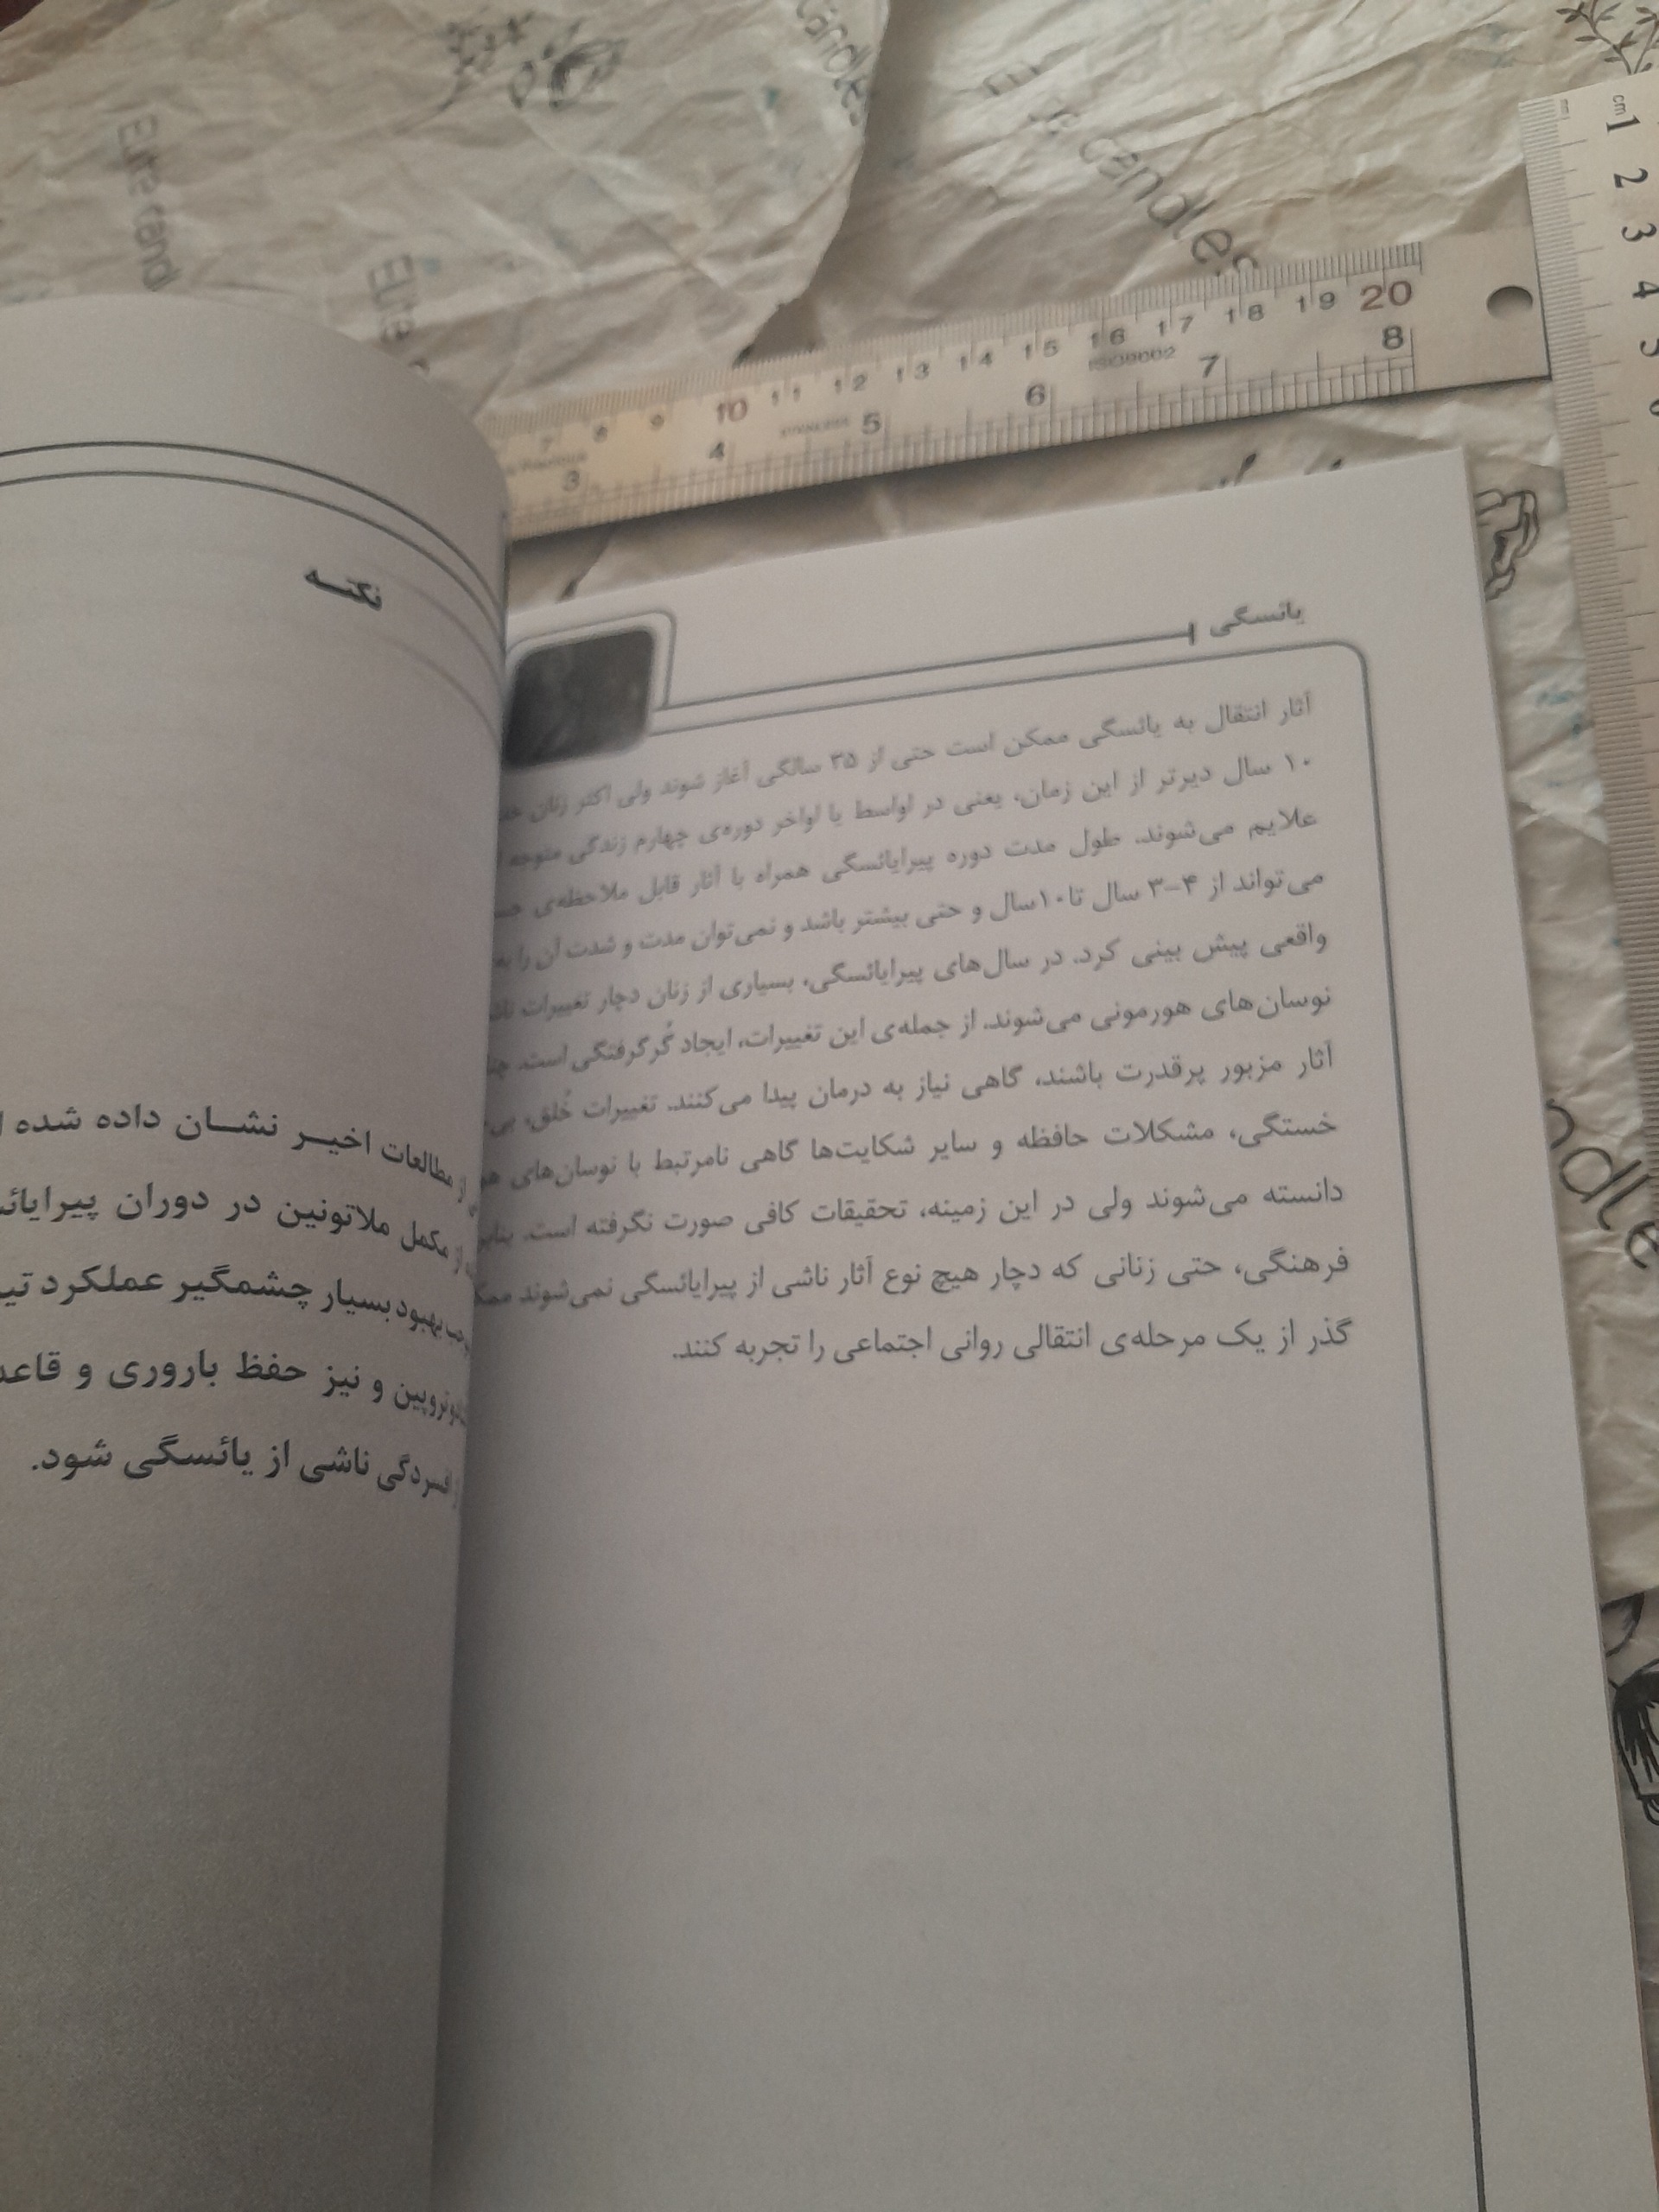 یائسگی
آثار انتقال به یائسگی ممکن است حتی از ۳۵ سالگی آغاز شوند ولی اکثر زنان
۱۰ سال دیرتر از این زمان، یعنی در اواسط یا اواخر دوره‌ی چهارم زندگی متوجه
علایم می‌شوند. طول مدت دوره پیرایائسگی همراه با آثار قابل ملاحظه‌ی
می‌تواند از ۴-۳ سال تا ۱۰سال و حتی بیشتر باشد و نمی‌توان مدت و شدت آن را
واقعی پیش بینی کرد. در سال‌های پیرایائسگی، بسیاری از زنان دچار تغییرات
نوسان‌های هورمونی می‌شوند. از جمله‌ی این تغییرات، ایجاد گُرگرفتگی است.
آثار مزبور پرقدرت باشند، گاهی نیاز به درمان پیدا می‌کنند. تغییرات خُلق،
خستگی، مشکلات حافظه و سایر شکایت‌ها گاهی نامرتبط با نوسان‌های
دانسته می‌شوند ولی در این زمینه، تحقیقات کافی صورت نگرفته است.
فرهنگی، حتی زنانی که دچار هیچ نوع آثار ناشی از پیرایائسگی نمی‌شوند
گذر از یک مرحله‌ی انتقالی روانی اجتماعی را تجربه کنند.
نکتـــه
از مطالعات اخیـــر نشـــان داده شده
از مکمل ملاتونین در دوران
بهبود بسیار چشمگیر عملکرد
و نیز حفظ باروری و
افسردگی ناشی از یائسگی شود.
Elite candles
Elite
candles
cm 1 2 3 4 5 6
7 8 9 10 11 12 13 14 15 16 17 18 19 20
ISO9002
3 4 5 6 7 8